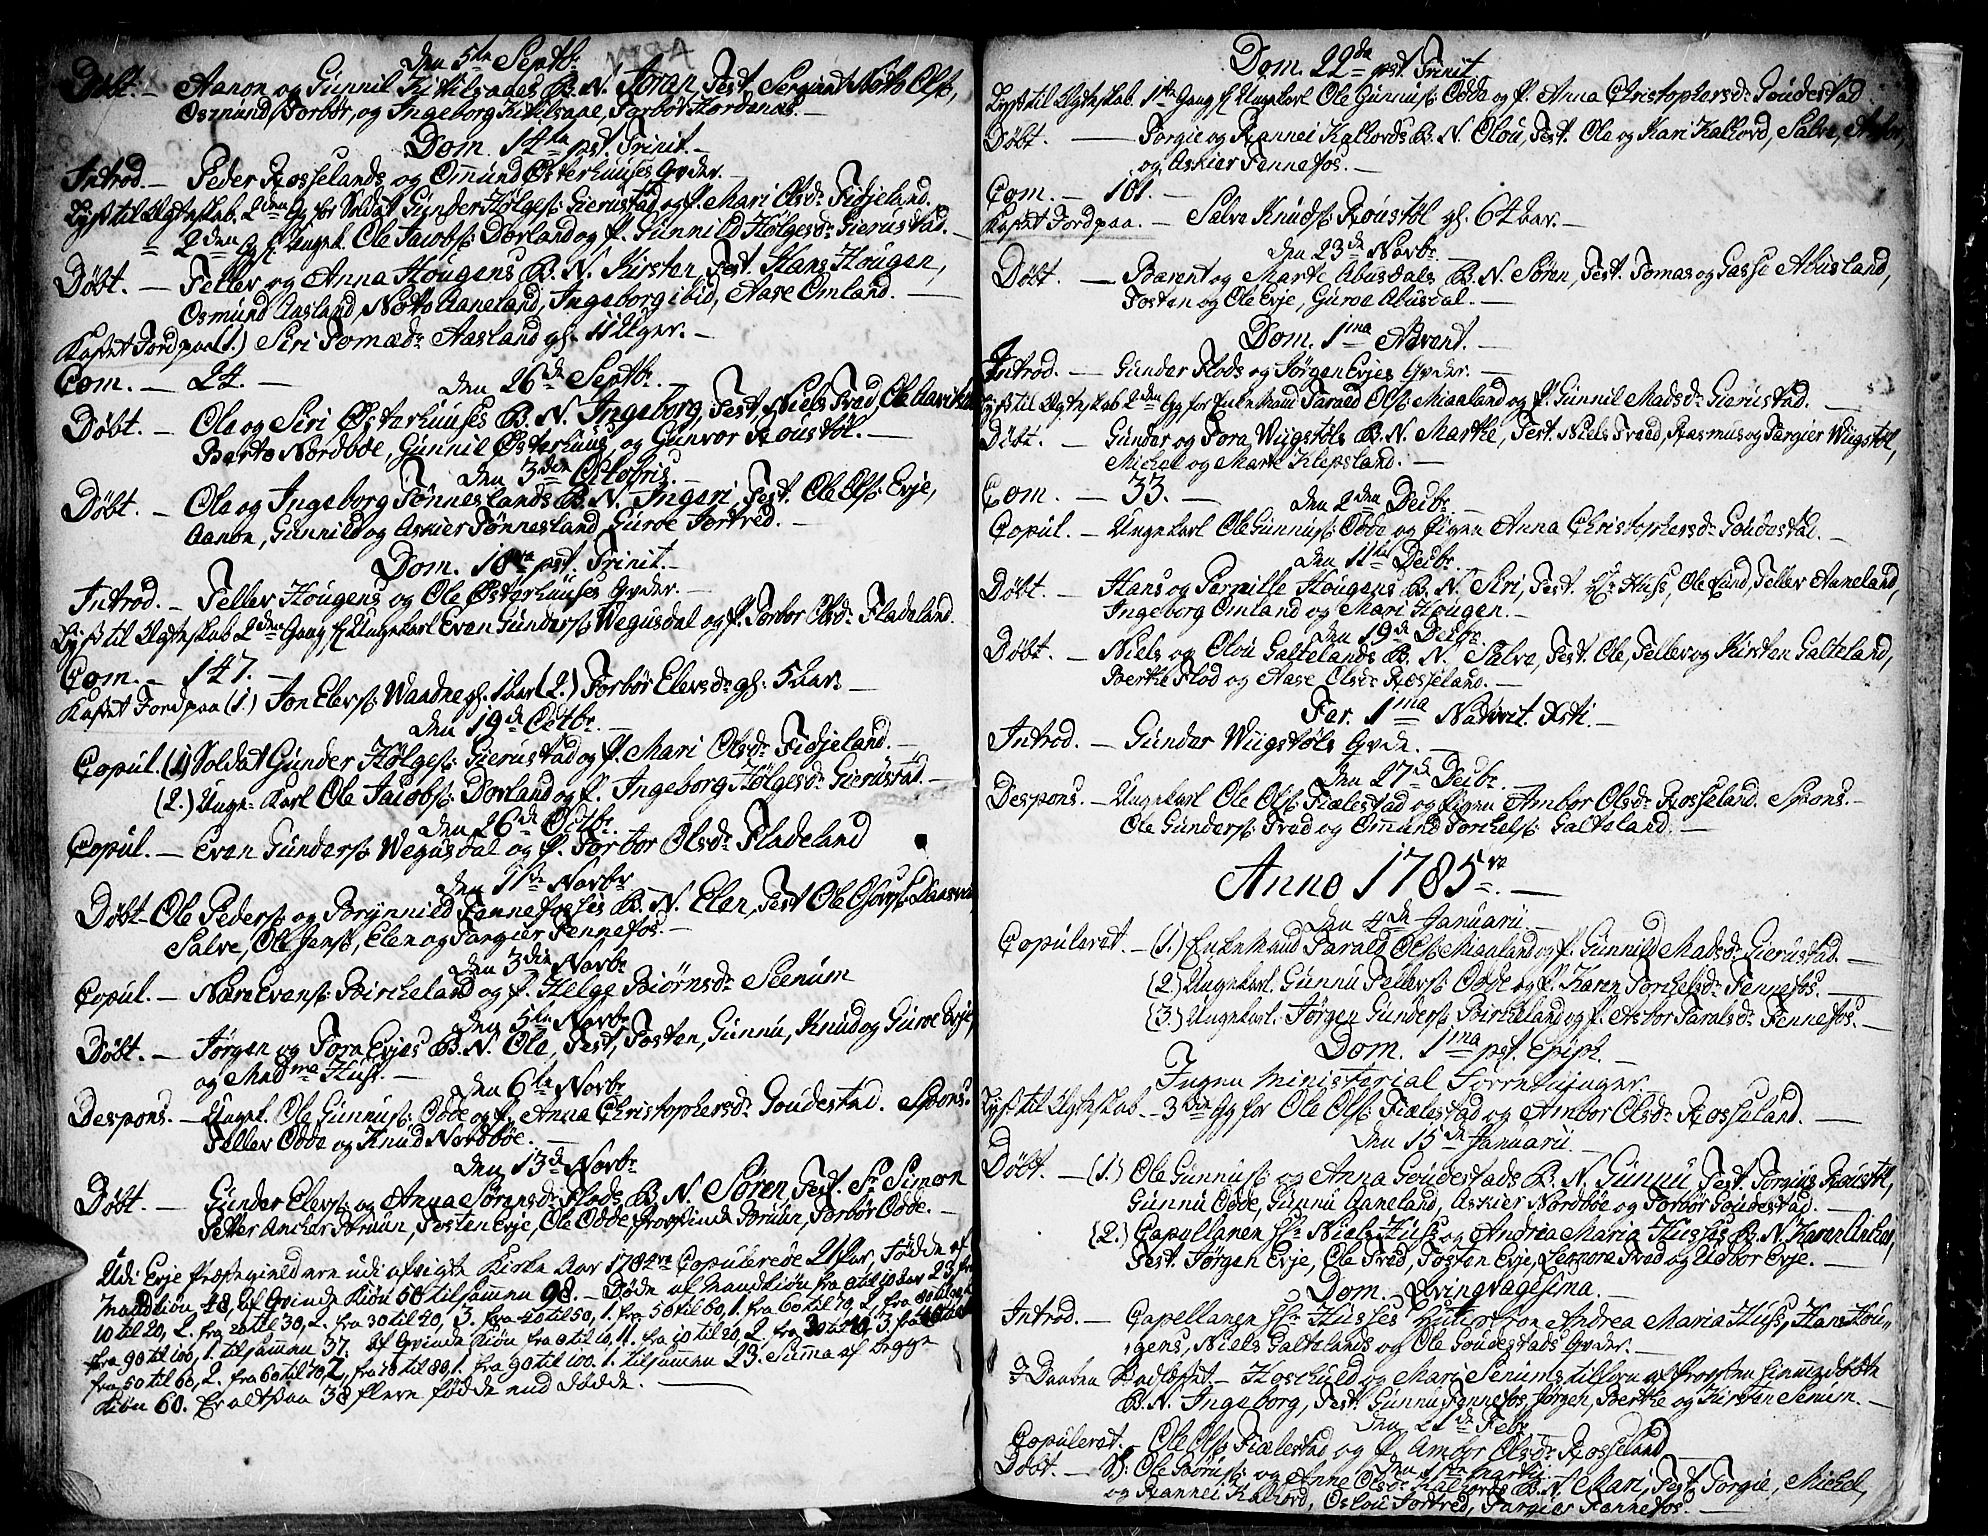 den 5te Septbr
Døbt. — Aanon og Gunnil Kittilsaaes B. N. Joran, Test. Sergiant Noto Ols:
Osmund Torbør, og Ingeborg Kittilsaae, Torbør Hordenes. —
Dom. 14te pst. Trinit. —
Introd. — Peder Rosselands og Omund Østerhuuses Qvder. —
Lyst til Ægteskab. 2den Gg for Soldat Gunder Hølges: Gierustad og P. Mari Olsdr Fidjeland.
= 2den Gg f. Ungek. Ole Jacobs: Dovland og P. Gunnild Hølgesdr Gierustad. —
Døbt. — Tellev og Anna Hougens B. N. Kirsten, Test. Hans Hougen,
Osmund Aasland, Noto Aaneland, Ingeborg ibid, Aase Omland. —
Kastet Jord paa (1.) Siri Tomædr Aasland gl. 11 Uger. —
Com. — 24. —
den 26de Septbr. —
Døbt. — Ola og Siri Østerhuuses B. N. Ingeborg, Test. Niels Tved, Ole
Berte Nordbøe, Gunnil Østerhuus, og Gunvor Roustøl. —
den 3den Octobris. —
Døbt. — Ola og Ingeborg Tønneslands B. N. Ingeri, Test. Ole Ols: Evje,
Aanon, Gunnild og Askier Tønnesland, Guroe Tortved. —
Dom. 18de pst. Trinit. —
Introd. — Tellev Hougens og Ole Østerhuuses Qvder. —
Lyst til Ægteskab 2den Gang f. Ungekarl Even Gunders: Wegusdal og P. Torbor Olsdr Fladeland.
Com. — 147. —
Kastet Jord paa (1.) Jon Elevs: Waadne gl. 1 Aar (2.) Torbør Elevsdr gl. 5 Aar. —
den 19de Octbr. —
Copul. (1) Soldat Gunder Hølges: Gierustad og P. Mari Olsdr Fidjeland. —
(2.) Unge-Karl Ole Jacobs: Dovland og P. Ingeborg Hølgesdr Gierustad. —
den 26de Octbr.
Copul. — Even Gunders: Wegusdal og P. Torbor Olsdr Fladeland
den 1ste Novbr
Døbt — Ole Peders: og Brynnild Fennefosses B. N. Elen, Test Ole
Salve, Ole Jens:, Elen og Targier Fennefos. —
den 3die Novbr
Copul. — Nare Evens: Bircheland og P. Helge Biørnsdr Seenum
den 5te Novbr
Døbt. — Jørgen og Tora Evjes B. N. Ole, Test, Tosten, Gunnu, Knud og Guroe Evje,
og Madme Huss. —
den 6te Novbr
Despons. — Ungek. Ole Gunnus: Odde og P. Anna Christophersdr Goudestad. Spons:
Tellev Odde og Knud Nordbøe. —
den 13de Novbr
Døbt. — Gunder Elevs: og Anna Sørensdr Flods B. N. Søren, Test. Sr Simon
Petter Ancher Bruun, Tosten Evje, Ole Odde Provstinde Bruun, Torbør Odde. —
Udi Evje Præstegield ere udi afvigte Kirke Aar 1784re Copulerede 21 Par, Fødde af
Mandkiøn 48, af Qvinde Kiøn 50 tilsammen 98. — Døde af Mandkiøn fra 0 til 10 Aar 23, fra
10 til 20, 2. fra 20 til 30, 2. fra 30 til 40, 3. fra 40 til 50, 1. fra 50 til 60, 1. fra 60 til 70, 2. fra 80 til
fra 90 til 100, 1. tilsammen 37. af Qvinde Kiøn fra 0 til 10, 11. fra 10 til 20, 2. fra 30 til 40, 3. fra
fra 50 til 60, 2. fra 60 til 70, 2, fra 70 til 80, 1. fra 90 til 100. 1. tilsammen 23. Suma af begge
Kiøn 60. Er altsaa 38 flere fødde end dødde. —
Dom. 22de pst. Trinit
Lyst til Ægteskab. 1te Gang f. Ungekarl Ole Gunnus: Odde og P. Anna Christophersdr Goudestad
Døbt. — Torgie og Rannei Kalhovds B. N. Olou, Test. Ole og Kari Kalhovd, Salve,
og Askier Fennefos. —
Com. — 101. —
Kastet Jord paa. — Salve Knuds: Roustøl gl. 64 Aar. —
den 23de Novbr. —
Døbt. — Barent og Marte Abusdals B. N. Søren, Test. Tomas og Gasse Abusland,
Tosten og Ole Evje, Guroe Abusdal. —
Dom. 1ma Advent. —
Introd. — Gunder Flods og Jørgen Evjes Qvder. —
Lyst til Ægteskab 2den Gg for Enkemand Tarald Ols: Miaaland og P. Gunnil Madsdr Gierustad. —
Døbt. — Gunder og Tora Wiigstøls B. N. Marthe, Test. Niels Tved, Rasmus og Targier Wiigstøl,
Michel og Marte Klepsland. —
Com. — 33. —
den 2den Decbr. —
Copul. — Ungekarl Ole Gunnus: Odde og Pigen Anna Christophersdr Goudestad. —
den 11te Decbr.
Døbt. — Hans og Pernille Hougens B. N. Siri, Test. Hr Huss, Ole Lund, Tellev Aaneland,
Ingeborg Omland og Mari Hougen. —
den 19de Decbr.
Døbt. — Niels og Olou Galtelands B. N. Salve, Test. Ole, Tellev og Kirsten Galteland,
Berthe Flod og Aase Olsdr Rosseland. —
Fer. 1ma Nativit. Xsti. —
Introd. — Gunder Wiigstøls Qvde. —
den 27de Decbr. —
Despons. — Ungekarl Ole Ols: Fiælestad og Pigen Ambor Olsdr Rosseland. Spons. —
Ole Gunders: Tved og Omund Torchels: Galteland. —
Anno 1785re. —
den 4de Januarii. —
Copuleret. — (1.) Enkemand Tarald Ols: Miaaland og P. Gunnild Madsdr Gierustad. —
(2.) Ungekarl. Gunnu Tellevs: Odde og P. Karen Torchelsdr Fennefos. —
(3.) Ungekarl. Jørgen Gunders: Bircheland og P. Asbor Taralsdr Fennefos. —
Dom. 1ma pst. Epiph. —
Ingen Ministerial Forretninger. —
Lyst til Ægteskab. — 3die Gg for Ole Ols: Fiælestad og Ambor Olsdr Rosseland. —
den 15de Januarii —
Døbt. — (1.) Ole Gunnus: og Anna Goudestads B. N. Gunnu Test. Torgius Roustøl,
Gunnu Odde, Gunnu Aaneland, Askier Nordbøe og Torbør Goudestad. —
(2.) Capellanen Hr Niels Huss og Andrea Maria Husses B. N. Karen
Test. Jørgen Evje, Ole Tved, Tosten Evje, Leonora Tved og Udbor Evje. —
Dom. Qvinqvagesima. —
Introd. — Capellanen Hr Husses Hustr Andrea Maria Huss, Hans Hou-
gens, Niels Galtelands og Ole Goudestads Qvder. —
I Daaben Stadfæstet. — Hoschuld og Mari Senums
B. N. Ingeborg, Test. Gunnu Fennefos, Jørgen, Berthe og Kirsten Senum. —
den 21de Febr
Copuleret. — Ole Ols: Fiælestad og P. Ambor Olsdr Rosseland
den Martii. —
Døbt. — Ole Børus: og Anne Olsdr Kalhovds B. N. Mari, Test. Torgie, Michel,
og Rannei Kalhovd, Oslou Tortved, Targier Fennefos. —